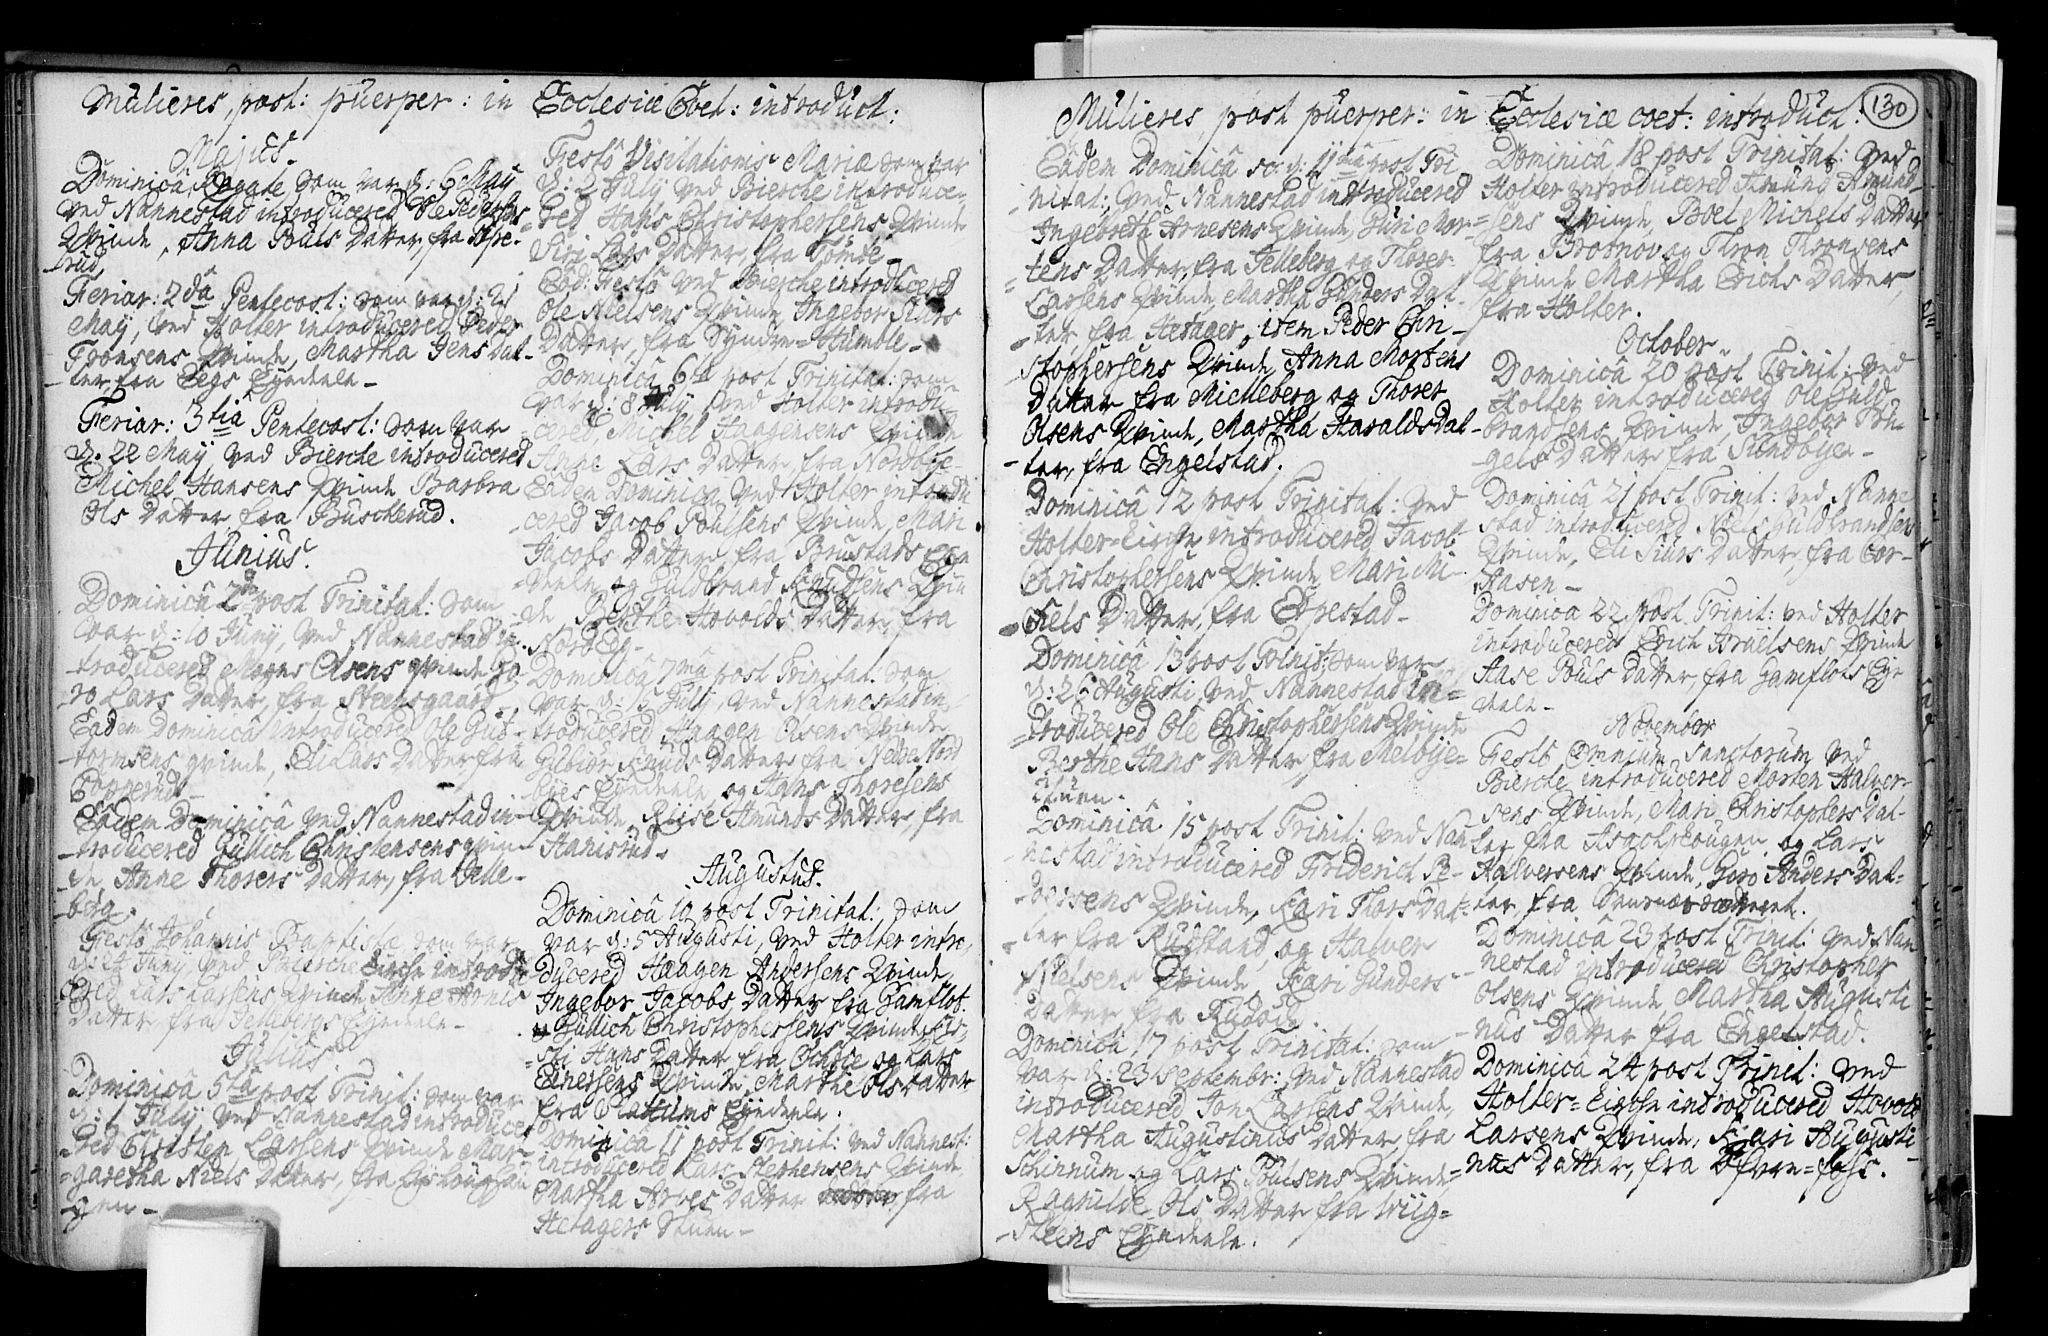 Mulieres, post: puerper: in Ecclesiæ Coet: introduct:
Majus.
Dominicâ Rogate som var d: 6 May
ved Nannestad introducered Ole Peders
Qvinde, Anna Pouls Datter, fra
rud
Feriar: 2dâ Pentecost: som var d: 21
May, ved Holter introducered Peder
Tronsens Qvinde, Martha Jens Dat-
ter fra Eegs Eyedeele-
Feriar: 3tiâ Pentecost: som var
d. 22 May ved Bierche introducered
Michel Hansens Qvinde Barbra
Ols Datter, fra Buscherud.
Junius.
Dominicâ 2dâ post Trinitat: som
var d: 10 Juny, ved Nannestad in-
troducered Mogns Olsens qvinde
Lars Datter, fra Steensgaard-
Eadem Dominicâ introducered Ole Gut-
tormsens qvinde, Eli Lars Datter fra
Opperud-
Eadem Dominicâ ved Nannestad in-
troducered Gullich Christensens qvin-
de, Anne Thores Datter, fra Jelle-
berg-
Festo Johannis Baptistæ som var
d: 24 Juny, ved Bierche Kirche introdu-
cered Lars Larsens Qvinde Anne
Datter, fra Jellebergs Eyedeele-
Julius.
Dominicâ 5tâ post Trinit: som var
d: 1 July, ved Nannestad introduce-
red Christen Larsens Qvinde Mar-
garetha Niels Datter, fra
gen-
Festô Visitationis Mariæ som var
d: 2 July ved Bierche introduce-
red Hans Christophersens Qvinde
Siri Lars Datter, fra Tømte-
Eod: Festô ved Bierche introducered
Ole Nielsens Qvinde Ingebor Siurs
Datter, fra Syndre-Humble-
Dominicâ 6tâ post Trinitat: som
var d: 8 July, ved Holter introdu-
cered, Michel Haagensens Qvinde
Anne Lars Datter fra Nordbye-
Eadem Dominicâ, ved Holter introdu-
cered Jacob Poulsens Qvinde, Mari
Jacobs Datter, fra Brustads Eye-
deele, og Guldbrand Knudsens Qvin-
de Berthe Hovolds Datter, fra
Nordeeg-
Dominicâ 7mâ post Trinitat: som
var d: 15 July, ved Nannestad in-
troducered Haagen Olsens Qvinde
Gubiør Knuds Datter fra Nedre Nord
byes Eyedeele, og Hans Thoresens
Qvinde, Kiise Amunds Datter, fra
Hamerud-
Augustus.
Dominicâ 10 post Trinitat: som
var d: 5 Augusti, ved Holter intro-
ducered Haagen Andersens Qvinde,
Ingebor Jacobs Datter, fra Gamflot.
og Gullich Christophersens Qvinde, Kir-
sti Hans Datter fra og Lars
Einersens Qvinde, Marthe Ols Datter
fra Eyedeele.
Dominicâ 11 post Trinit: ved Nannest:
introducered Lars Stephensens Qvinde,
Martha Arves Datter fra
Hetagers Stuen-
130
Mulieres, post puerper: in Ecclesiæ coet: introduct:
Eadem Dominicâ sc: d: 11mâ post Tri-
nitat: ved Nannestad introducered
Ingebreth Arnesens Qvinde, Guri Mor-
tens Datter, fra Jelleberg og Thorer
Larsens Qvinde Martha Gunders Dat-
ter fra Hetager, item Peder Chri-
stophersens Qvinde Anna Mortens
Datter fra Michelberg og Thorer
Olsens Qvinde, Martha Haralds Dat-
ter, fra Engelstad.
Dominicâ 12 post Trinitat: ved
Holter-Kirche introducered Jacob
Christophersens Qvinde, Mari Mi-
chels Datter, fra Epestad-
Dominicâ 13 post Trinit: som var
d: 26 Augusti ved Nannestad in-
troducered Ole Christophersens Qvinde
Berthe Hans Datter, fra Melbye-
stuen-
Dominicâ 15 post Trinit: ved Nan-
nestad introducered Friderich Pe-
dersens Qvinde, Kari Thors Dat-
ter fra Rudstand, og Halver
Nielsens Qvinde, Kari Gunders
Datter fra Rudsød.
Dominicâ 17 post Trinitat: som
var d: 23 Septembr: ved Nannestad
introducered Jon Larsens Qvinde,
Martha Augustinus Datter, fra
Schinnum og Lars Poulsens Qvinde,
Ragnilde Ols Datter fra Wiig-
Steens Eyedeele.
Dominicâ 18 post Trinitat: ved
Holter introducered Amund Amund-
sens Qvinde, Boel Michels Datter
fra Brotnov og Thron Thronsens
Qvinde Martha Erichs Datter,
fra Holter.
October
Dominicâ 20 post Trinit: ved
Holter introducered Ole Guld-
brandsens Qvinde Ingebor En-
gels Datter fra Sundbyen-
Dominicâ 21 post Trinit: ved Nanne
stad introducered Niels Guldbrandsens
Qvinde, Eli Siurs Datter, fra Cor-
Hasen-
Dominicâ 22 post Trinit: ved Holter
introducered Erich Iffuelsens Qvinde
Aase Pouls Datter, fra Gamflots Eye
deele-
November
Festo Omnium Sanctorum ved
Bierche introducered Morten Halver-
sens Qvinde, Mari Christophers Dat-
ter fra Asachhougen og Lars
Halversens Qvinde, Goro Anders Dat-
ter fra
Dominicâ 23 post Trinit: ved Nan-
nestad introducered Christopher
Olsens Qvinde Martha Augusti
nus Datter fra Engelstad.
Dominicâ 24 post Trinit: ved
Holter-Kirche introducered Hovold
Larsens Qvinde, Kari Augusti
nus Datter, fra Øfvre-foss.